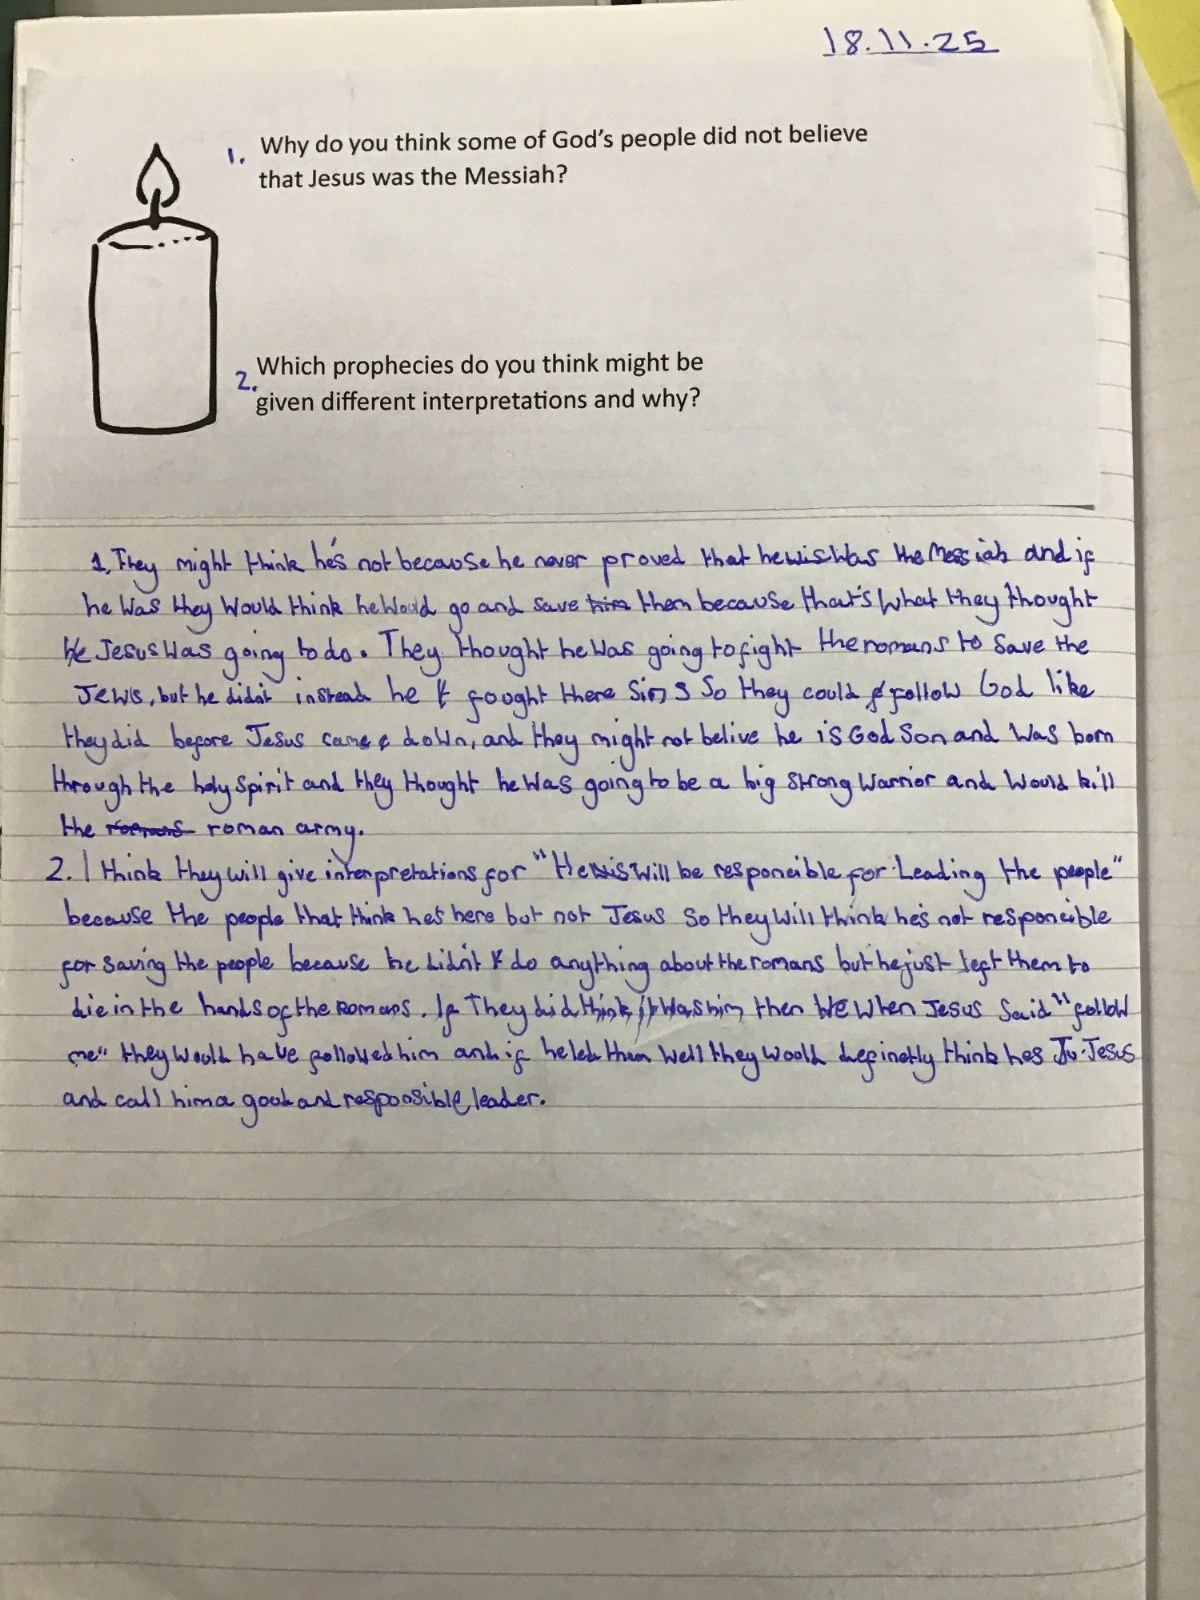 18.11.25
1. Why do you think some of God's people did not believe
that Jesus was the Messiah?
2. Which prophecies do you think might be
given different interpretations and why?
1. They might think he's not because he never proved that he was the Messiah and if
he was they would think he would go and save them because that's what they thought
Jesus was going to do. They thought he was going to fight the romans to save the
Jews, but he didn't instead he fought there sins so they could follow God like
they did before Jesus came down, and they might not belive he is God Son and was born
through the holy spirit and they thought he was going to be a big strong warrior and would kill
the romans roman army.
2. I think they will give interpretations for "He will be responcible for Leading the people"
because the people that think he's here but not Jesus so they will think he's not responcible
for saving the people because he didn't do anything about the romans but he just left them to
die in the hands of the Romans. If They did think it was him then when Jesus said "follow
me" they would have followed him and if he led them well they woold definetly think hes Jesus
and call him a good and responsible leader.